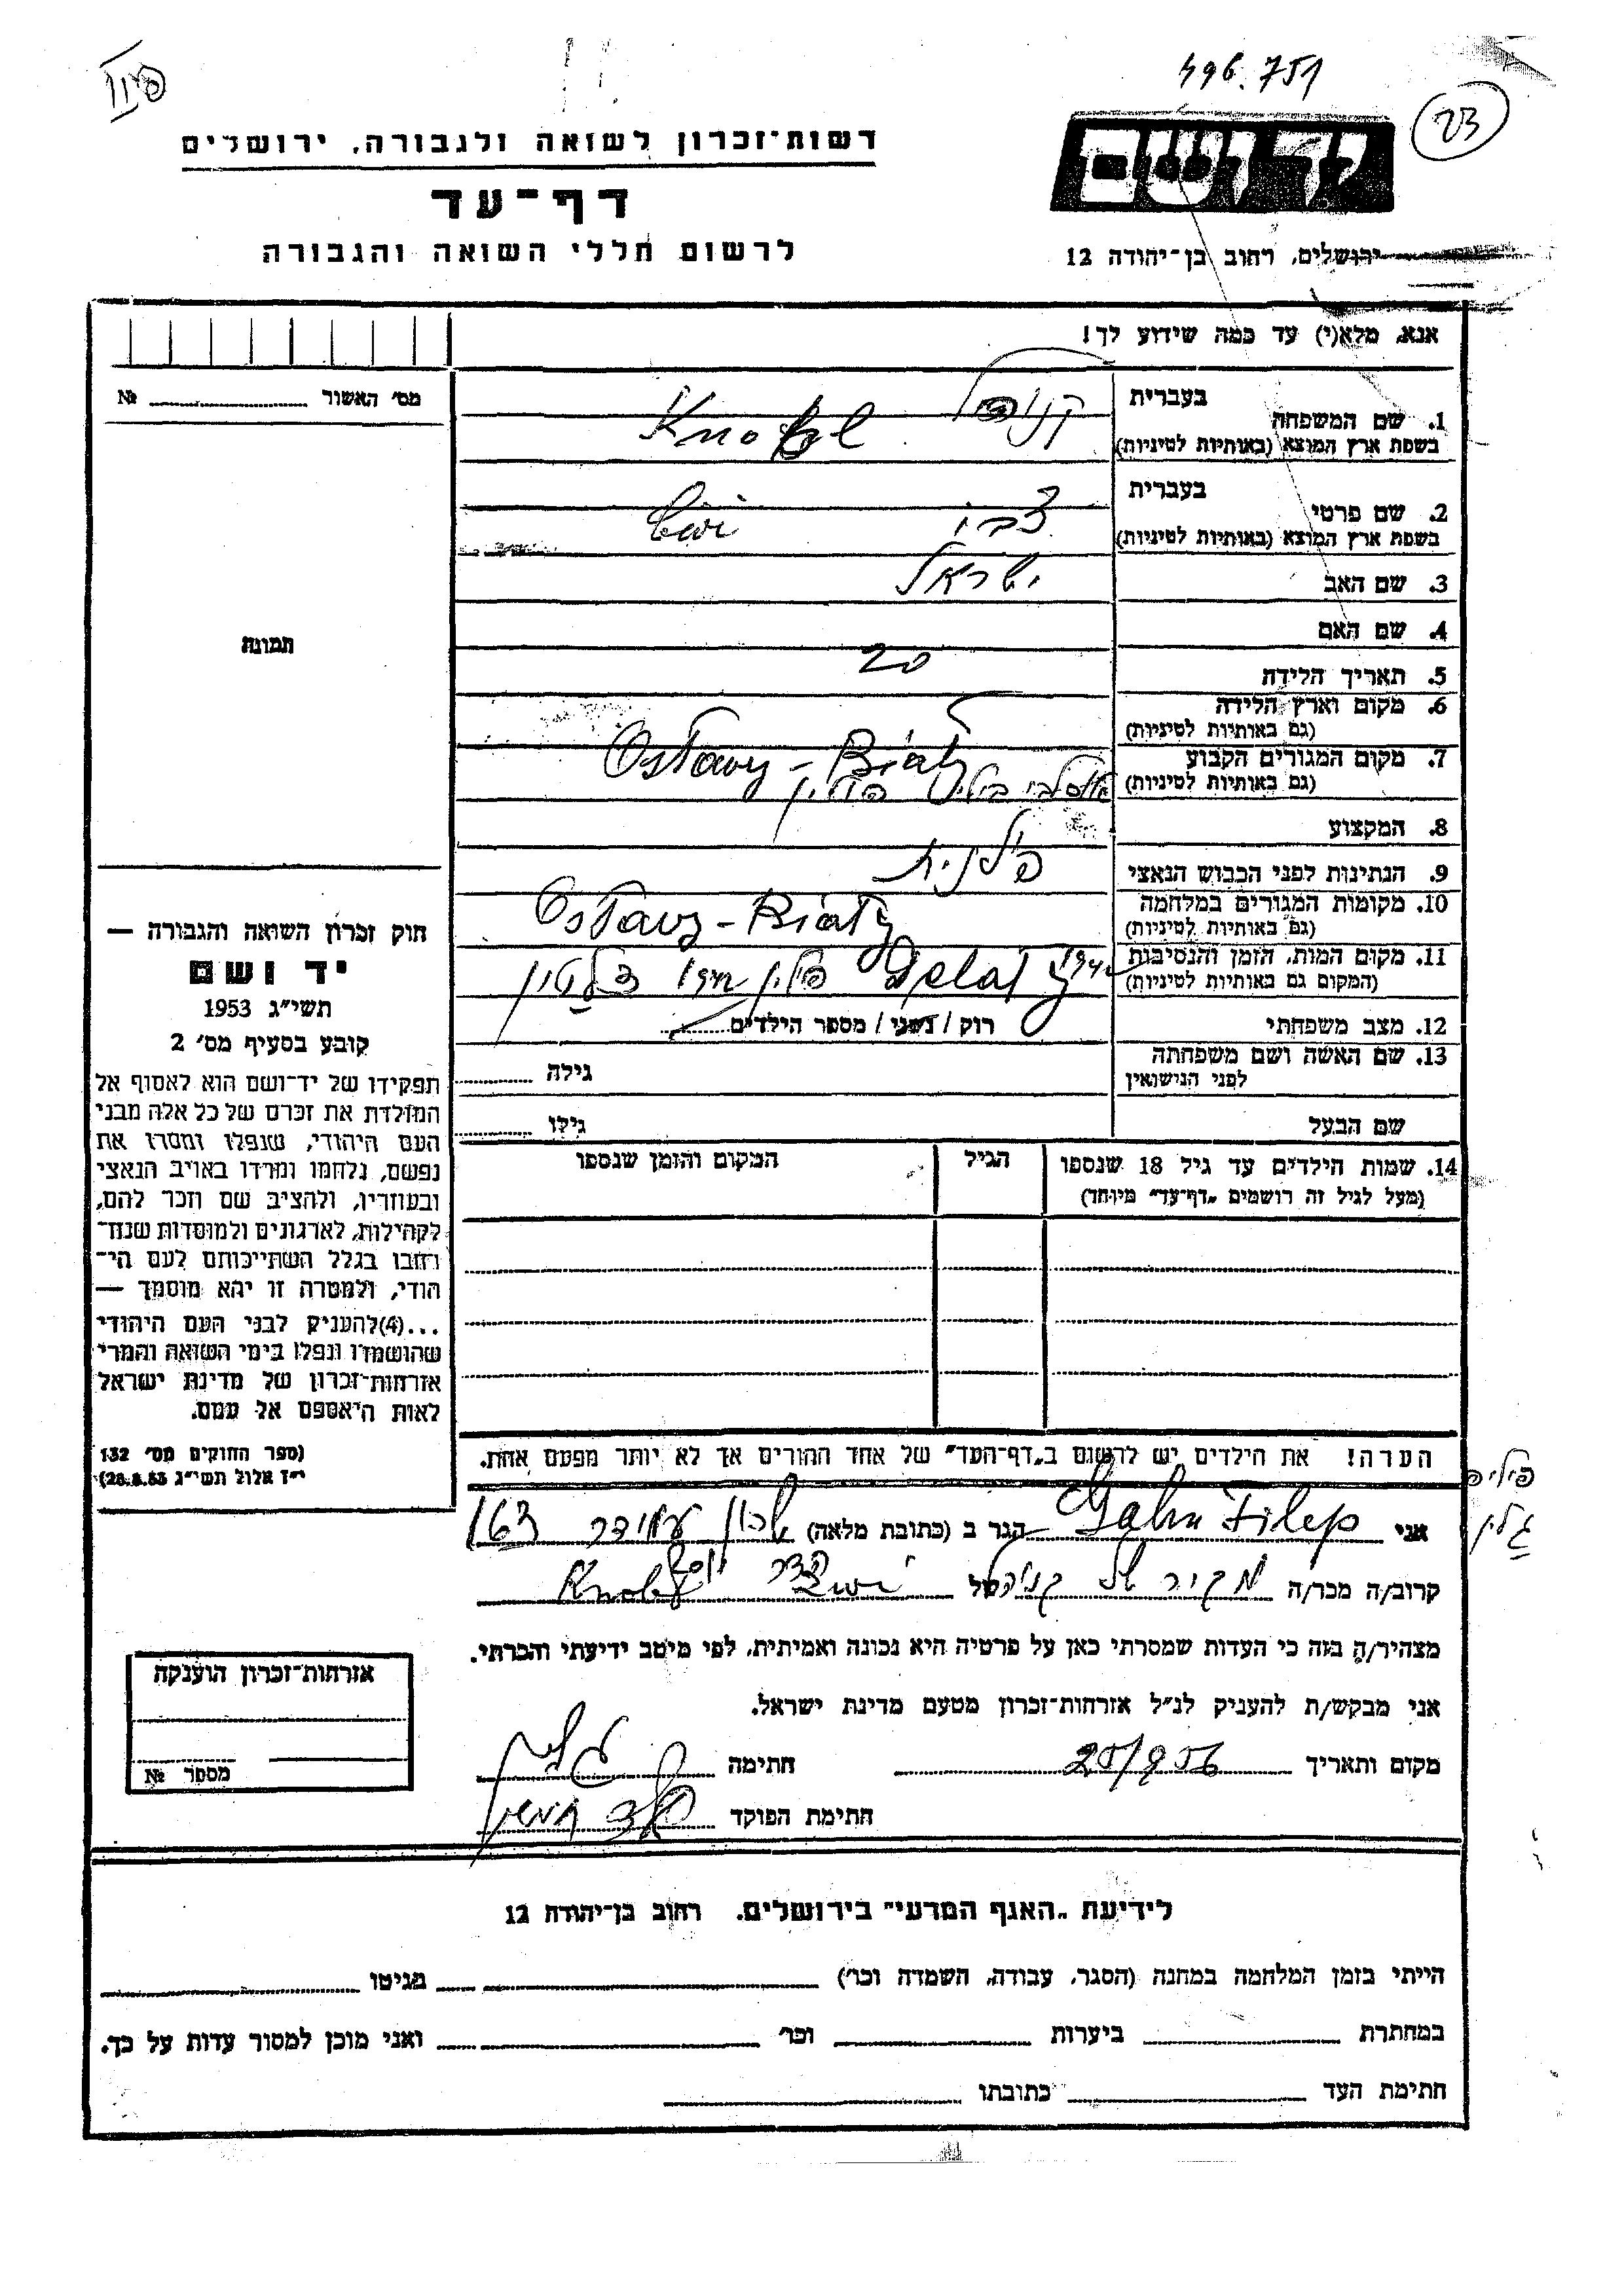 496.751
23
ידושם
רשות־זכרון לשואה ולגבורה, ירושלים
דף־עד
לרשום חללי השואה והגבורה
ירושלים, רחוב בן־יהודה 12
אנא, מלא(י) עד כמה שידוע לך!
מס׳ האשור № 
תמונה
1. שם המשפחה
בעברית
בשפת ארץ המוצא (באותיות לטיניות)
Knobel
2. שם פרטי
בעברית
צבי
בשפת ארץ המוצא (באותיות לטיניות)
3. שם האב ישראל
4. שם האם
5. תאריך הלידה 20
6. מקום וארץ הלידה
(גם באותיות לטיניות)
7. מקום המגורים הקבוע
(גם באותיות לטיניות)
Ostawy - Biały
8. המקצוע
9. הנתינות לפני הכבוש הנאצי פולנית
10. מקומות המגורים במלחמה
(גם באותיות לטיניות)
Ostawy - Biały
11. מקום המות, הזמן והנסיבות
(המקום גם באותיות לטיניות)
פולין
12. מצב משפחתי רוק / נשוי / מספר הילדים
13. שם האשה ושם משפחתה
לפני הנישואין
גילה
שם הבעל גילו
14. שמות הילדים עד גיל 18 שנספו
(מעל לגיל זה רושמים „דף־עד״ מיוחד)
הגיל
המקום והזמן שנספו
חוק זכרון השואה והגבורה —
יד ושם
תשי״ג 1953
קובע בסעיף מס׳ 2
תפקידו של יד־ושם הוא לאסוף אל
המולדת את זכרם של כל אלה מבני
העם היהודי, שנפלו ומסרו את
נפשם, נלחמו ומרדו באויב הנאצי
ובעוזריו, ולהציב שם וזכר להם,
לקהילות, לארגונים ולמוסדות שנח־
רבו בגלל השתייכותם לעם הי־
הודי, ולמטרה זו יהא מוסמך —
...(4)להעניק לבני העם היהודי
שהושמדו ונפלו בימי השואה והמרי
אזרחות־זכרון של מדינת ישראל
לאות היאספם אל עמם.
(ספר החוקים מס׳ 132
י״ז אלול תשי״ג 28.8.53)
הערה! את הילדים יש לרשום ב„דף־העד״ של אחד ההורים אך לא יותר מפעם אחת.
פיליפ
גלין
אני Galin Filep הגר ב (כתובת מלאה) שכון עמידר 163
קרוב/ה מכר/ה מכיר של Knobel
מצהיר/ה בזה כי העדות שמסרתי כאן על פרטיה היא נכונה ואמיתית, לפי מיטב ידיעתי והכרתי.
אני מבקש/ת להעניק לנ״ל אזרחות־זכרון מטעם מדינת ישראל.
מקום ותאריך 25/9 56 חתימה גלין
חתימת הפוקד
אזרחות־זכרון הוענקה
מספר №
לידיעת „האגף המדעי״ בירושלים, רחוב בן־יהודה 12
הייתי בזמן המלחמה במחנה (הסגר, עבודה, השמדה וכו׳) בגיטו
במחתרת ביערות וכו׳ ואני מוכן למסור עדות על כך.
חתימת העד כתובתו